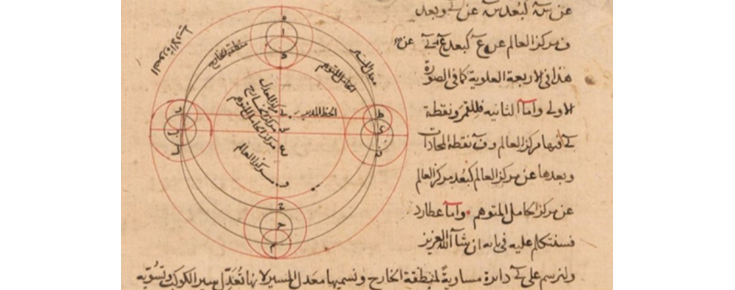 عن سه كبعد سه عن ے وبعد
ف مركز العالم عن ع كبعد ع عن
هذا فى الاربعة العلوية كما فى الصورة
الاولى واما الثانية فللقمر ونقطة
ے فيها مركز العالم و ف نقطة المحاذاة
وبعدها عن مركز العالم كبعد مركز العالم
عن مركز الحامل المتوهم واما عطارد
فسنتكلم عليه فى بابه ان شآ الله العزيز
ولنرسم على ے دائرة مساوية لمنطقة الخارج ونسميها معدل المسير لانها تعدل سير الكوكب وتسويه
الصورة الاولى
منطقة الخارج
الحامل المتوهم
معدل المسير
الخط المدير
مركز المعدل
مركز الخارج
مركز الحامل المتوهم
مركز العالم